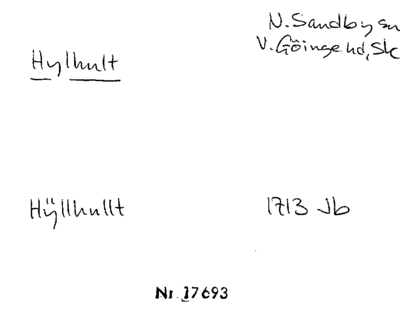 N. Sandby sn
Hylhult
V. Göinge hd, Sk
Hÿllhullt
1713 Jb
Nr. 17693